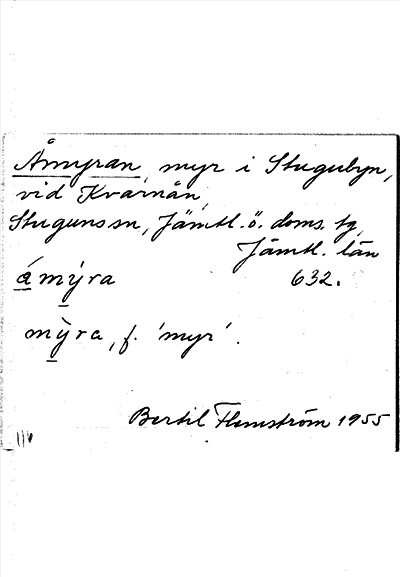 Åmyran, myr i Stugubyn,
vid Kvarnån,
Stuguns sn, Jämtl. ö. doms. tg,
Jämtl. län
á mýra 632.
mỳra, f. 'myr'.
Bertil Flemström 1955